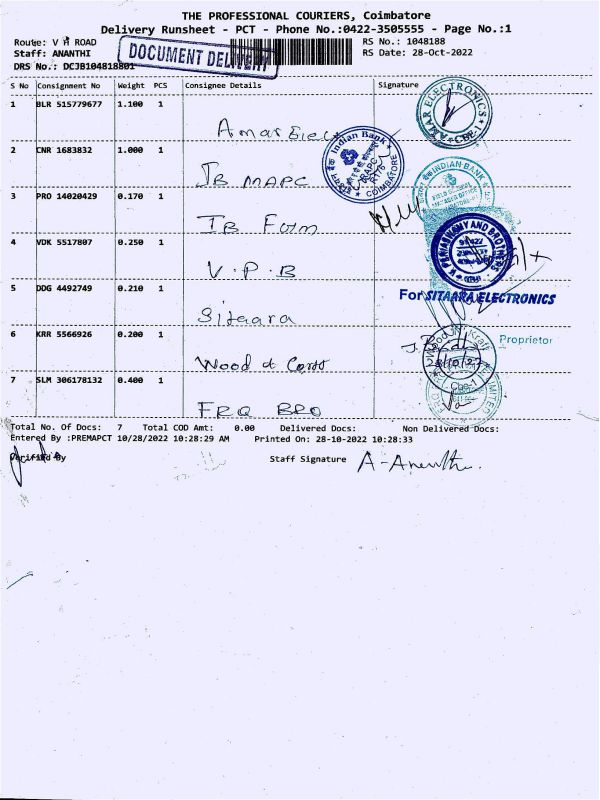 THE PROFESSIONAL COURIERS, Coimbatore
Delivery Runsheet - PCT - Phone No.:0422-3505555 - Page No.:1
Route: V H ROAD
RS No.: 1048188
Staff: ANANTHI
DOCUMENT DELIVERY
RS Date: 28-Oct-2022
DRS No.: DCJB104818801
S No Consignment No Weight PCS Consignee Details Signature
1 BLR 515779677 1.100 1
Amar Elec
AMAR ELECTRONICS
CBE-1
2 CNR 1683832 1.000 1
IB MAPC
Indian Bank
COIMBATORE
3 PRO 14020429 0.170 1
IB Fom
INDIAN BANK
4 VDK 5517807 0.250 1
V.P.B
AND BROTHERS
5 DDG 4492749 0.210 1
Sitaara
For SITAARA ELECTRONICS
Proprietor
6 KRR 5566926 0.200 1
Wood & Corss
Wood N Kraft
Cbe-1
7 SLM 306178132 0.400 1
FRQ BRO
LIMITED
Total No. Of Docs: 7 Total COD Amt: 0.00 Delivered Docs: Non Delivered Docs:
Entered By :PREMAPCT 10/28/2022 10:28:29 AM Printed On: 28-10-2022 10:28:33
Verified By
Staff Signature A-Ananthi.